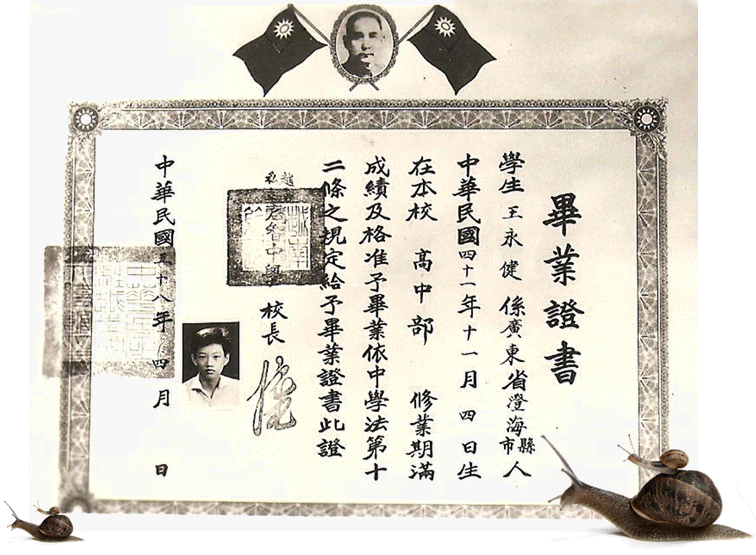 畢業證書
學生王永健係廣東省澄海縣市人
中華民國四十一年十一月四日生
在本校高中部修業期滿
成績及格准予畢業依中學法第十
二條之規定給予畢業證書此證
校長
中華民國五十八年四月日